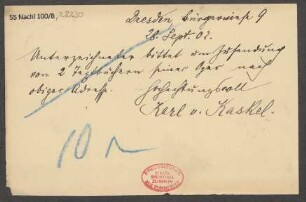 55 Nachl 100/B,
Dresden, Bürgerwiese 9
26. Sept. 07.
Unterzeichneter bittet um Zusendung
von 2 Textbüchern seiner Oper nach
obiger Adresse. Hochachtungsvoll
Karl v. Kaskel.
10